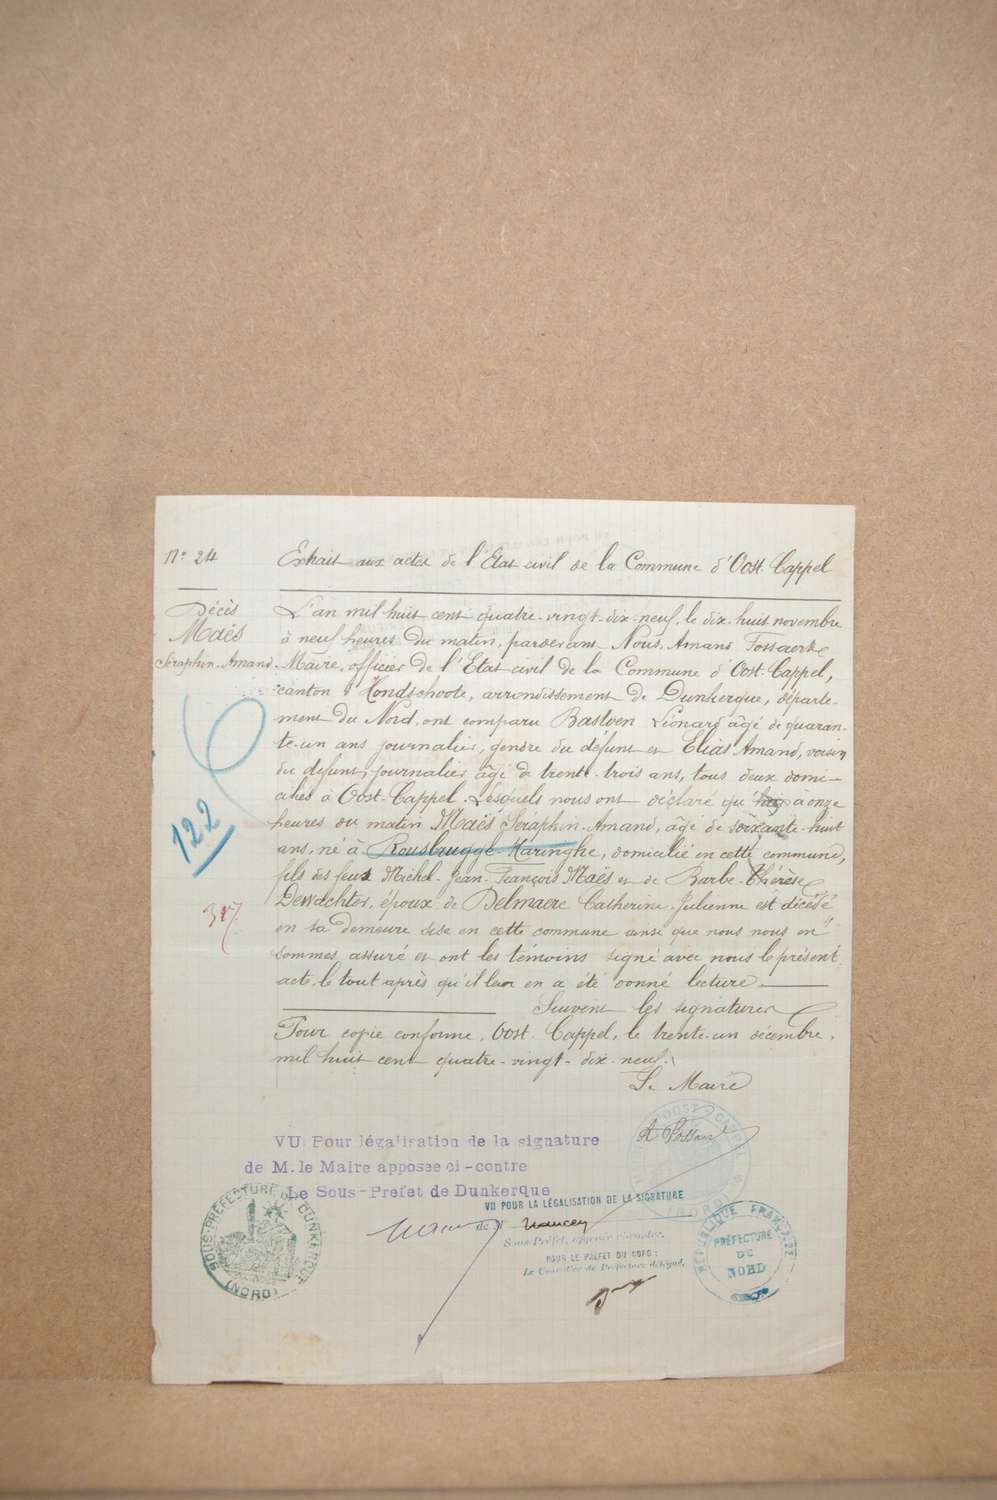 N° 24
Extrait aux actes de l'Etat civil de la Commune d'Oost-Cappel
Décès
Maës
Séraphin-Amand
L'an mil huit cent quatre-vingt-dix-neuf, le dix-huit novembre
à neuf heures du matin, pardevant Nous, Amand Fossaert
Maire, officier de l'Etat civil de la Commune d'Oost-Cappel,
canton d'Hondschoote, arrondissement de Dunkerque, départe-
ment du Nord, ont comparu Bastven Léonard âgé de quaran-
te-un ans journalier, gendre du défunt et Elias Amand, voisin
du défunt, journalier âgé de trente-trois ans, tous deux domi-
ciliés à Oost-Cappel. Lesquels nous ont déclaré qu'hier à onze
heures du matin Maës Séraphin-Amand, âgé de soixante-huit
ans, né à Rousbrugge-Haringhe, domicilié en cette commune,
fils des feux Michel-Jean-François Maës et de Barbe-Thérèse
Dewachter, époux de Delmaere Catherine-Julienne est décédé
en sa demeure sise en cette commune ainsi que nous nous en
sommes assuré et ont les témoins signé avec nous le présent
acte, le tout après qu'il leur en a été donné lecture.
Suivent les signatures
Pour copie conforme, Oost-Cappel, le trente-un décembre,
mil huit cent quatre-vingt-dix-neuf.
Le Maire
A Fossaert
122
317
VU Pour légalisation de la signature
de M. le Maire apposée ci-contre
Le Sous-Préfet de Dunkerque
VU POUR LA LÉGALISATION DE LA SIGNATURE
de M Nancey
Sous-Préfet,
POUR LE PRÉFET DU NORD:
Le Conseiller de Préfecture délégué,
SOUS-PRÉFECTURE DE DUNKERQUE
(NORD)
OOST-CAPPEL
(NORD)
RÉPUBLIQUE FRANÇAISE
PRÉFECTURE
DU
NORD